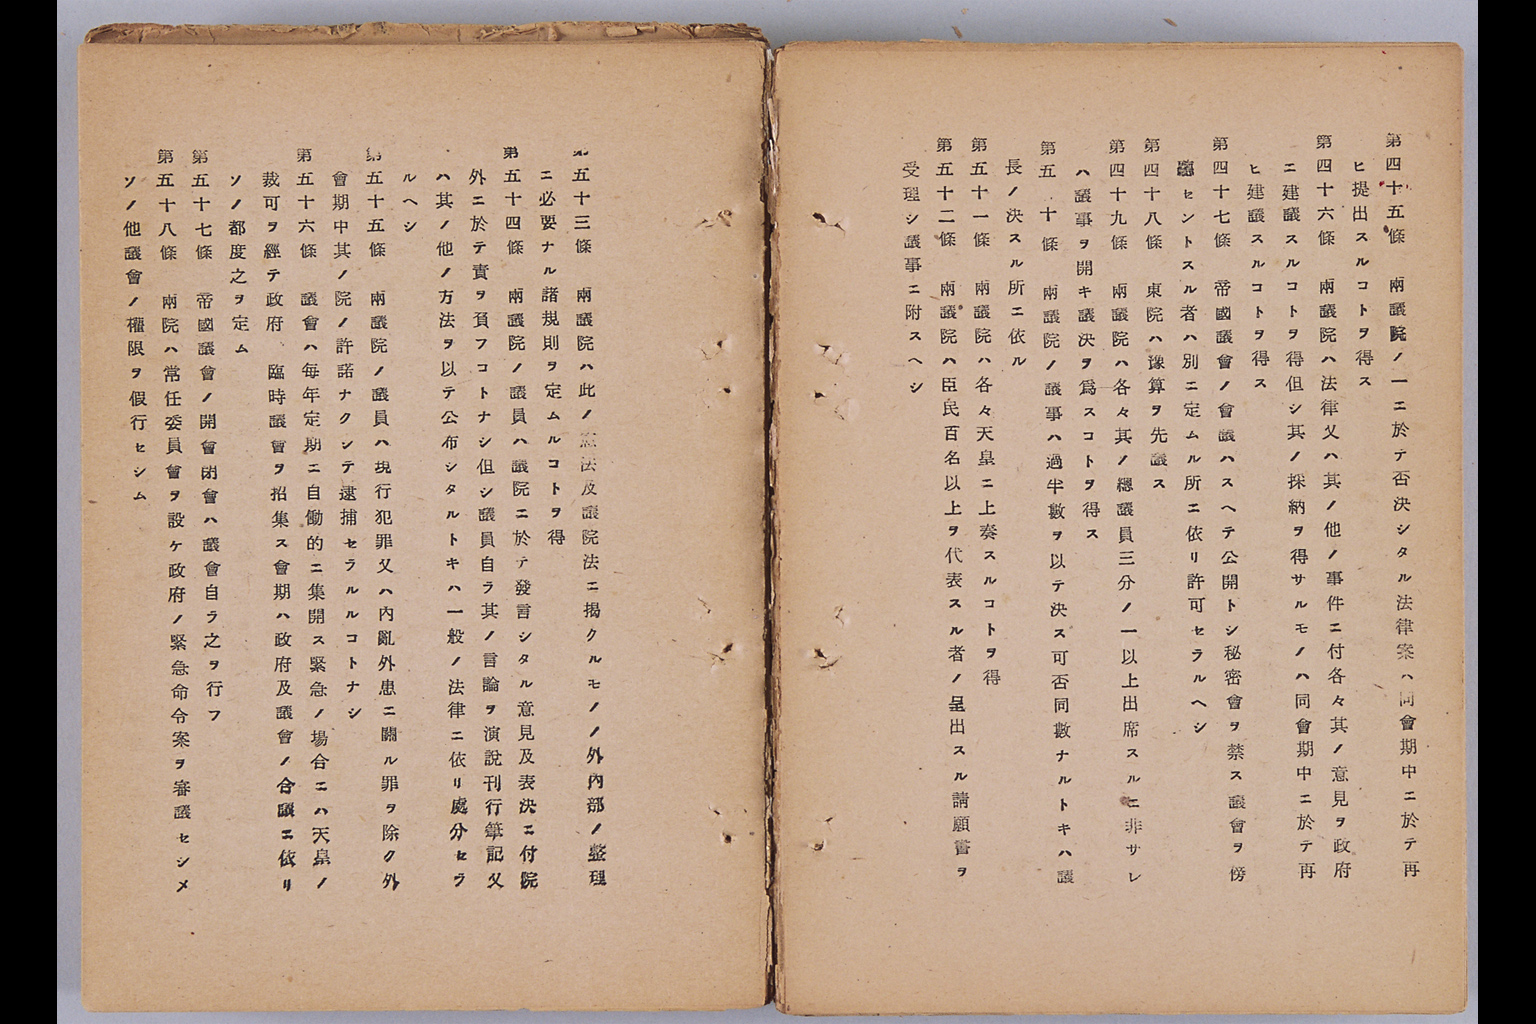 第四十五條　兩議院ノ一ニ於テ否決シタル法律案ハ同會期中ニ於テ再
ヒ提出スルコトヲ得ス
第四十六條　兩議院ハ法律又ハ其ノ他ノ事件ニ付各々其ノ意見ヲ政府
ニ建議スルコトヲ得但シ其ノ採納ヲ得サルモノハ同會期中ニ於テ再
ヒ建議スルコトヲ得ス
第四十七條　帝國議會ノ會議ハスヘテ公開トシ秘密會ヲ禁ス議會ヲ傍
聽セントスル者ハ別ニ定ムル所ニ依リ許可セラルヘシ
第四十八條　東院ハ豫算ヲ先議ス
第四十九條　兩議院ハ各々其ノ總議員三分ノ一以上出席スルニ非サレ
ハ議事ヲ開キ議決ヲ爲スコトヲ得ス
第五十條　兩議院ノ議事ハ過半數ヲ以テ決ス可否同數ナルトキハ議
長ノ決スル所ニ依ル
第五十一條　兩議院ハ各々天皇ニ上奏スルコトヲ得
第五十二條　兩議院ハ臣民百名以上ヲ代表スル者ノ呈出スル請願書ヲ
受理シ議事ニ附スヘシ
第五十三條　兩議院ハ此ノ憲法及議院法ニ揭クルモノノ外內部ノ整理
ニ必要ナル諸規則ヲ定ムルコトヲ得
第五十四條　兩議院ノ議員ハ議院ニ於テ發言シタル意見及表決ニ付院
外ニ於テ責ヲ負フコトナシ但シ議員自ラ其ノ言論ヲ演說刊行筆記又
ハ其ノ他ノ方法ヲ以テ公布シタルトキハ一般ノ法律ニ依リ處分セラ
ルヘシ
第五十五條　兩議院ノ議員ハ現行犯罪又ハ內亂外患ニ關ル罪ヲ除ク外
會期中其ノ院ノ許諾ナクシテ逮捕セラルルコトナシ
第五十六條　議會ハ每年定期ニ自働的ニ集開ス緊急ノ場合ニハ天皇ノ
裁可ヲ經テ政府　臨時議會ヲ招集ス會期ハ政府及議會ノ合議ニ依リ
ソノ都度之ヲ定ム
第五十七條　帝國議會ノ開會閉會ハ議會自ラ之ヲ行フ
第五十八條　兩院ハ常任委員會ヲ設ケ政府ノ緊急命令案ヲ審議セシメ
ソノ他議會ノ權限ヲ假行セシム